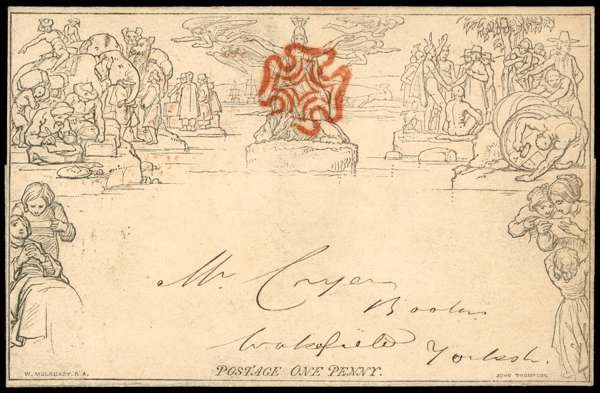 Mr. Cryer
Wakefield Yorksh.
POSTAGE ONE PENNY.
W. MULREADY. R.A.
JOHN THOMPSON.